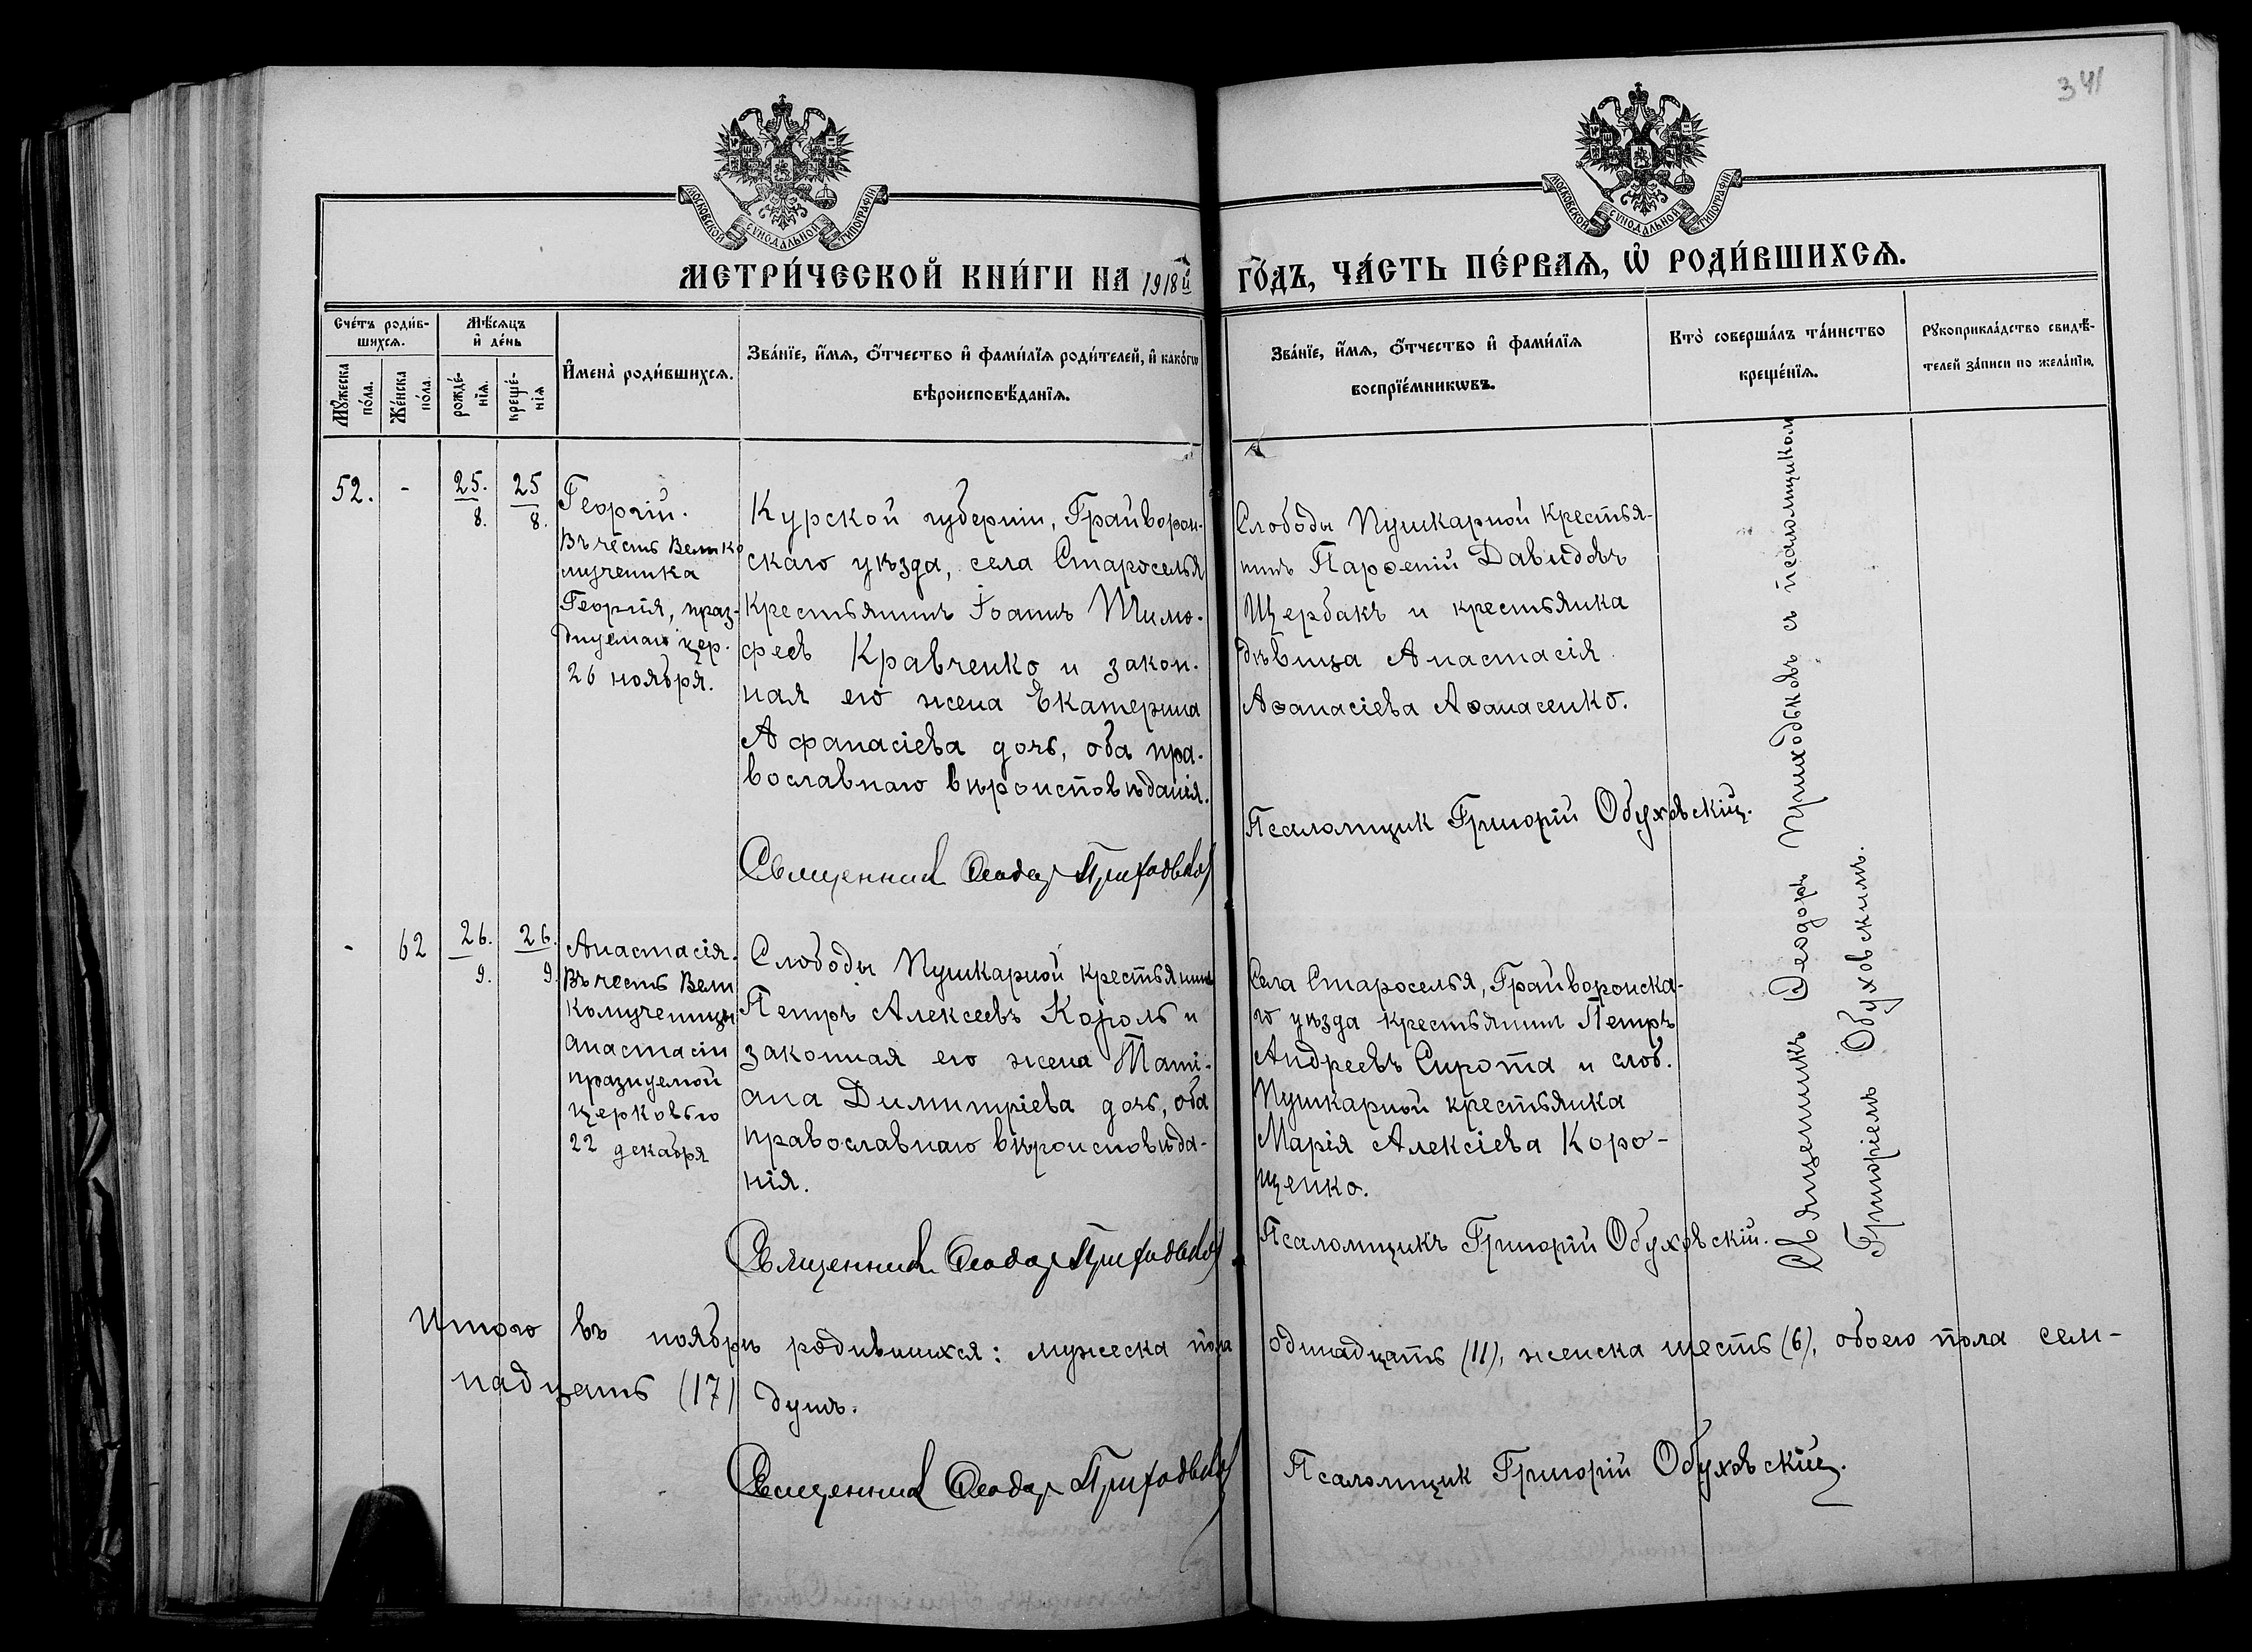 341
МОСКОВСКОЙ СѴНОДАЛЬНОЙ ТИПОГРАФІИ
МОСКОВСКОЙ СѴНОДАЛЬНОЙ ТИПОГРАФІИ
МЕТРИ́ЧЕСКОЙ КНИ́ГИ НА 1918й ГО́ДЪ, ЧА́СТЬ ПЕ́РВАѦ, Ѡ҆ РОДИ́ВШИХСѦ.
Сче́тъ роди́в-
шихсѧ.
Мꙋ́жеска
по́ла.
Же́нска
по́ла.
Мѣ́сѧцъ
и҆ де́нь
рожде́-
нїѧ.
креще́-
нїѧ
И҆мена̀ роди́вшихсѧ.
Зва́нїе, и҆́мѧ, ѻ҆́тчество и҆ фами́лїѧ роди́телей, и҆ како́гѡ
вѣроисповѣ́данїѧ.
Зва́нїе, и҆́мѧ, ѻ҆́тчество и҆ фами́лїѧ
воспрїе́мникѡвъ.
Кто̀ соверша́лъ та́инство
креще́нїѧ.
Рꙋкоприкла́дство свидѣ́-
телей за́писи по жела́нїю.
52.
-
25.
8.
25
8.
Георгій.
Въ честь Велико
мученика
Георгія, праз-
днуемаго цер.
26 ноября.
Курской губерніи, Грайворон-
скаго уѣзда, села Староселья
крестьянинъ Іоаннъ Тимо-
феевъ Кравченко и закон-
ная его жена Екатерина
Афанасіева дочь, оба пра-
вославнаго вѣроисповѣданія.
Священникъ Ѳеодоръ Приходьковъ
Слободы Пушкарной крестья-
нинъ Парѳеній Давидовъ
Щербакъ и крестьянка
дѣвица Анастасія
Аѳанасіева Аѳанасенко.
Псаломщик Григорій Обуховскій.
Священникъ Ѳеодоръ Приходьковъ съ псаломщикомъ
Григоріемъ Обуховскимъ.
-
62
26.
9.
26.
9.
Анастасія.
Въ честь Вели
комученицы
Анастасіи
празнуемой
церковью
22 декабря
Слободы Пушкарной крестьянинъ
Петръ Алексеевъ Король и
законная его жена Таті-
ана Димитріева дочь, оба
православнаго вѣроисповѣда-
нія.
Священникъ Ѳеодоръ Приходьковъ
Села Староселья, Грайворонска-
го уѣзда крестьянинъ Петръ
Андреевъ Сирота и слоб.
Пушкарной крестьянка
Марія Алексіева Коро-
щенко.
Псаломщикъ Григорій Обуховскій.
Итого въ ноябрѣ родившихся: мужеска пола одинадцать (11), женска шесть (6), обоего пола сем-
надцать (17) душъ.
Священникъ Ѳеодоръ Приходьковъ
Псаломщик Григорій Обуховскій.